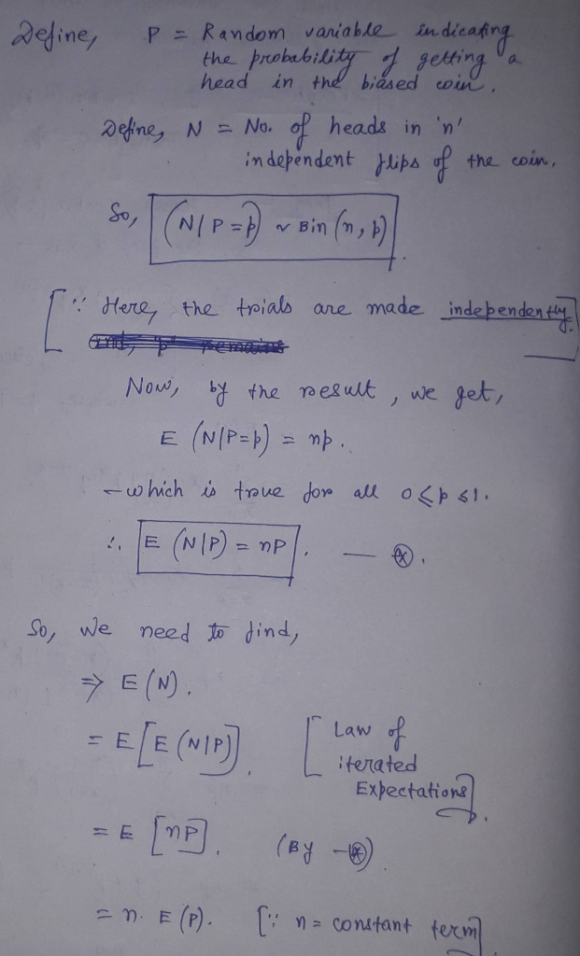 Define, P = Random variable indicating
the probability of getting a
head in the biased coin.
Define, N = No. of heads in 'n'
independent flips of the coin.
So, (N|P=p) ~ Bin (n, p).
[∵ Here, the trials are made independently.]
Now, by the result, we get,
E (N|P=p) = np.
– which is true for all 0 ≤ p ≤ 1.
∴ E (N|P) = nP. — ⊛.
So, we need to find,
⇒ E(N).
= E[E(N|P)]. [Law of
iterated
Expectations].
= E [nP]. (By –⊛)
= n. E(P). [∵ n = constant term]